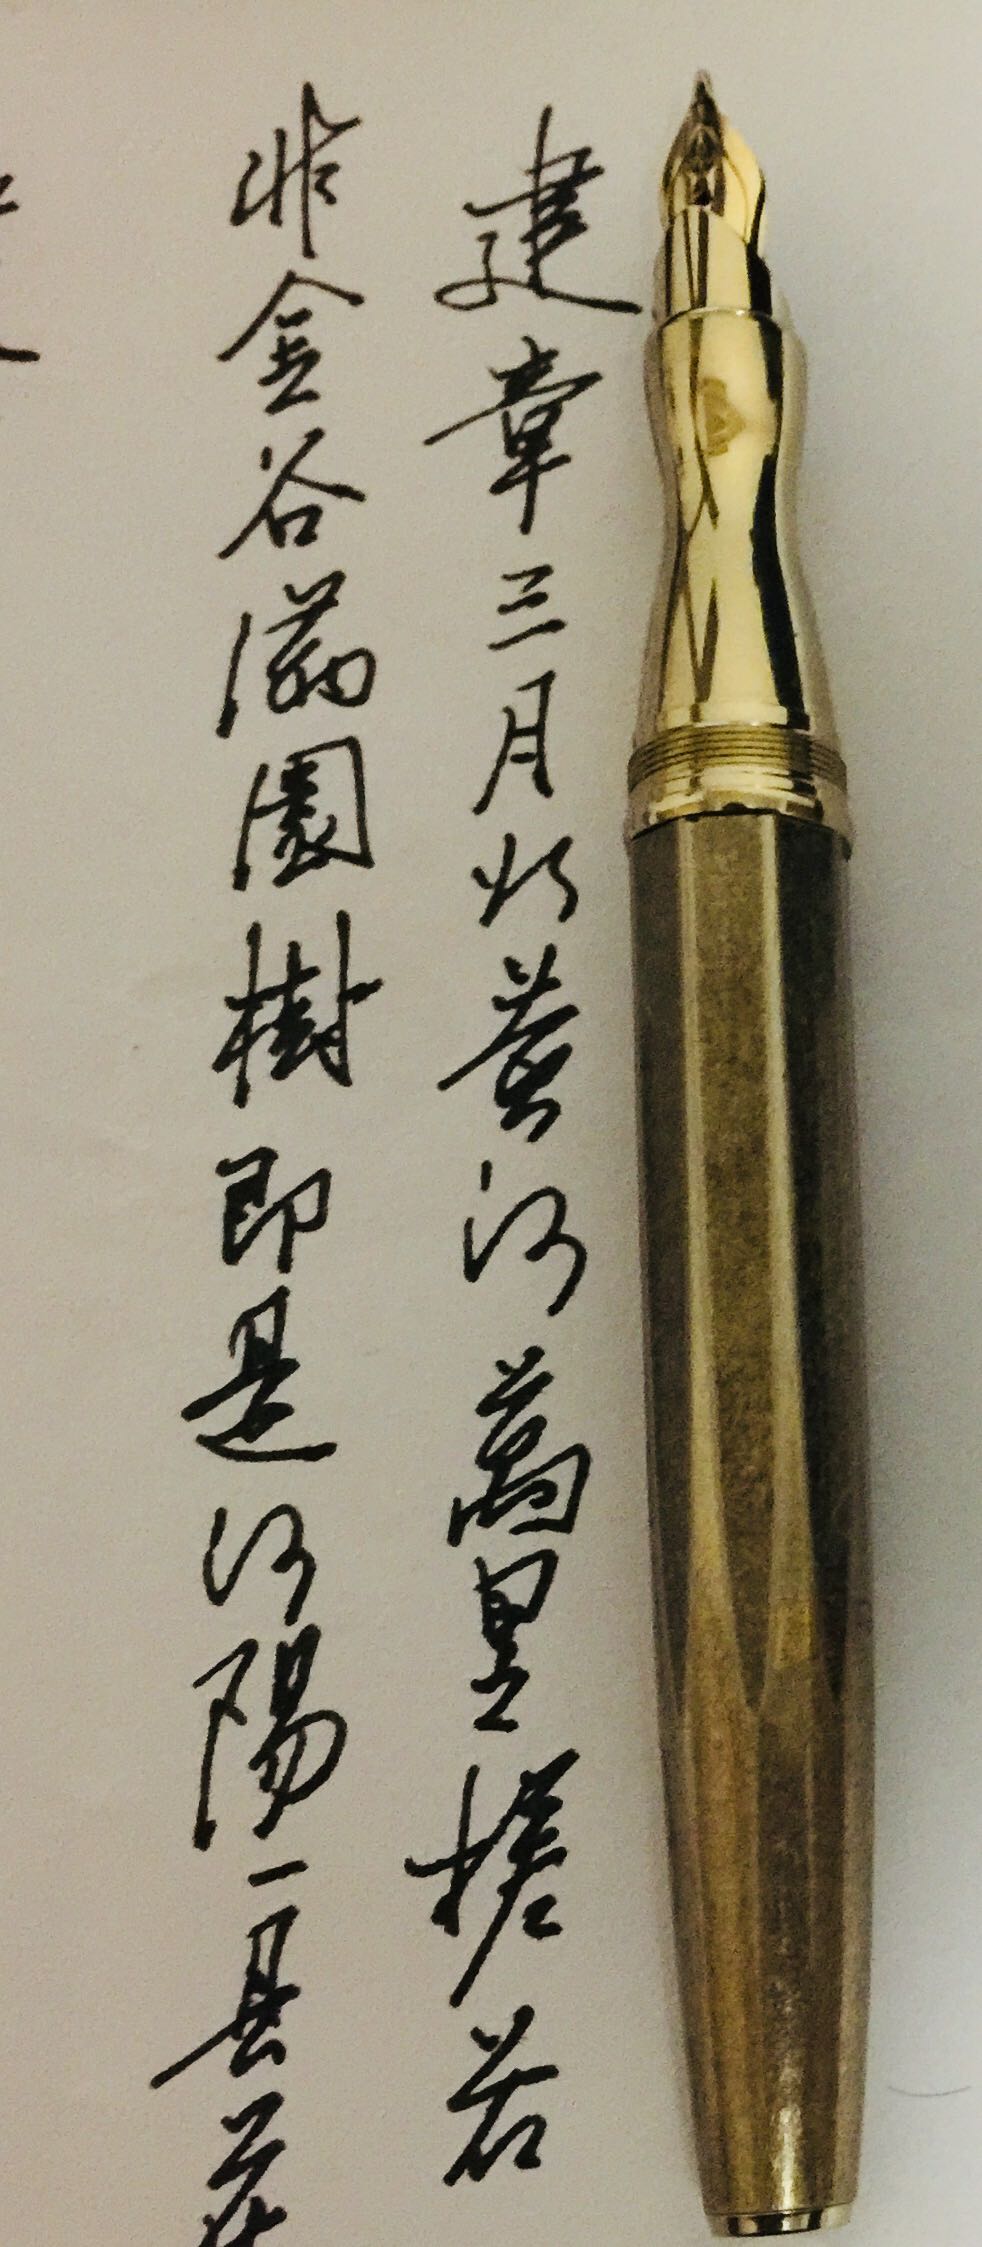 建章三月火黃河萬里槎若
非金谷滿園樹即是河陽一県花